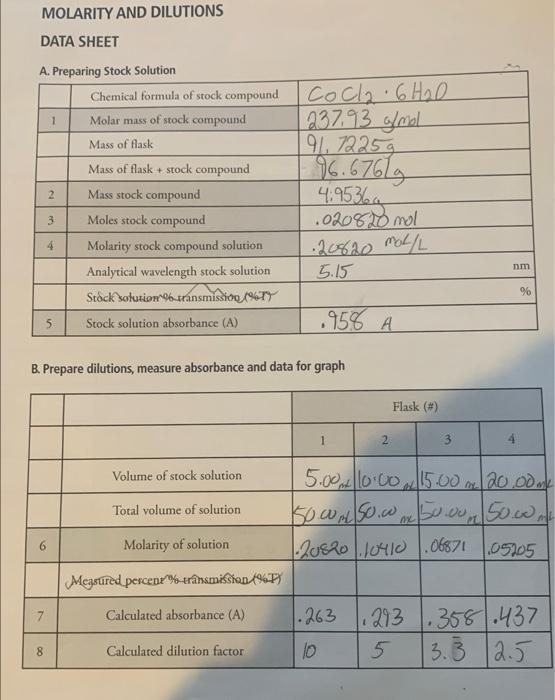 MOLARITY AND DILUTIONS
DATA SHEET
A. Preparing Stock Solution
Chemical formula of stock compound CoCl2 · 6H2O
1 Molar mass of stock compound 237.93 g/mol
Mass of flask 91.7225g
Mass of flask + stock compound 96.6761g
2 Mass stock compound 4.9536g
3 Moles stock compound .020820 mol
4 Molarity stock compound solution .20820 mol/L
Analytical wavelength stock solution 5.15 nm
Stock solution % transmission (%T) %
5 Stock solution absorbance (A) .958 A
B. Prepare dilutions, measure absorbance and data for graph
Flask (#)
1 2 3 4
Volume of stock solution 5.00mL 10.00mL 15.00mL 20.00mL
Total volume of solution 50.00mL 50.00mL 50.00mL 50.00mL
6 Molarity of solution .20820 .10410 .06871 .05205
Measured percent % transmission (%T)
7 Calculated absorbance (A) .263 .293 .358 .437
8 Calculated dilution factor 10 5 3.3̅ 2.5